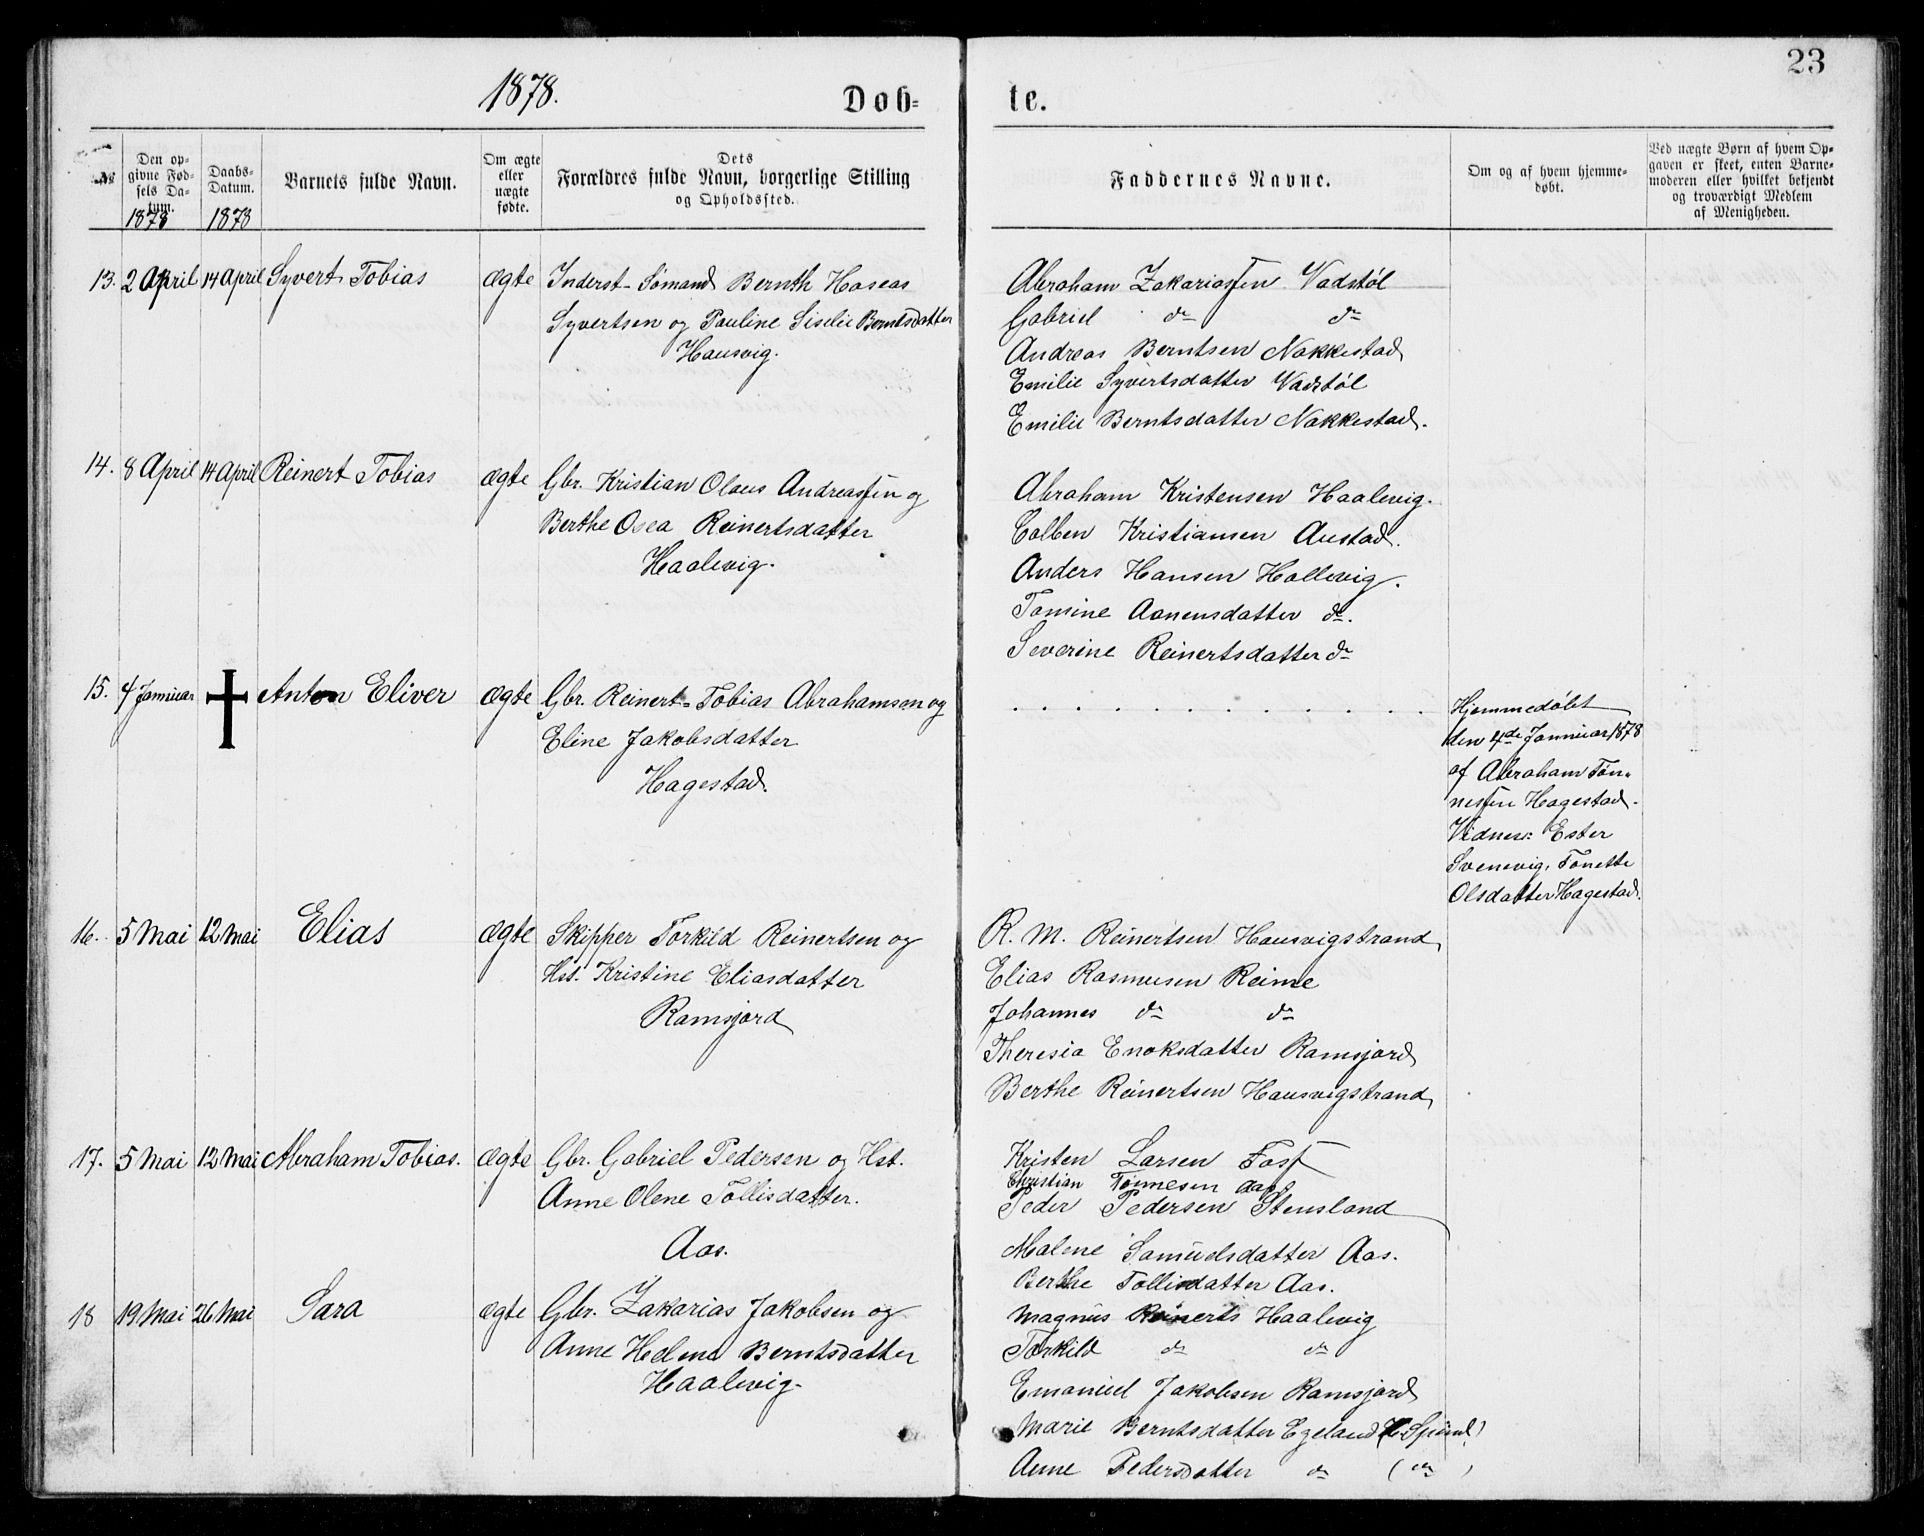 23
1878.
Døb-
te.
№
Den op-
givne Fød-
sels Da-
tum.
1878
Daabs-
Datum.
1878
Barnets fulde Navn.
Om ægte
eller
uægte
fødte.
Dets
Forældres fulde Navn, borgerlige Stilling
og Opholdssted.
Faddernes Navne.
Om og af hvem hjemme-
døbt.
Ved uægte Børn af hvem Op-
gaven er skeet, enten Barne-
moderen eller hvilket bekjendt
og troværdigt Medlem
af Menigheden.
13. 2 April 14 April Syvert Tobias ægte Inderst- Sømand Bernth Hoseas
Syvertsen og Pauline Siselie Berntsdatter
Hausvig.
Abraham Zakariassen Vadstøl
Gabriel do do
Andreas Berntsen Nakkestad
Emilie Syvertsdatter Vadstøl
Emilie Berntsdatter Nakkestad.
14. 8 April 14 April Reinert Tobias ægte Gbr. Kristian Olaus Andreassen og
Berthe Osea Reinertsdatter
Haalevig.
Abraham Kristensen Haalevig.
Colben Kristiansen Austad.
Anders Hansen Hallevig.
Tomine Aanensdatter do.
Severine Reinertsdatter do
15. 4 Januar † Anton Eliver ægte Gbr. Reinert Tobias Abrahamsen og
Eline Jakobsdatter
Hagestad.
. . . . . . . . . . . . .
Hjemmedøbt
den 4de Januar 1878
af Abraham Tøn-
nessen Hagestad.
Vidner: Ester
Svenevig, Tonette
Olsdatter Hagestad.
16. 5 Mai 12 Mai Elias ægte Skipper Torkild Reinertsen og
Hst. Kristine Eliasdatter
Ramsjord
R. M. Reinertsen Hausvigstrand
Elias Rasmusen Reime
Johannes do do
Theresia Enoksdatter Ramsjord
Berthe Reinertsen Hausvigstrand
17. 5 Mai 12 Mai Abraham Tobias. ægte Gbr. Gabriel Pedersen og Hst.
Anne Olene Tollisdatter.
Aas.
Kristen Larsen
Christian Tønnesen Aas
Peder Pedersen Stensland
Malene Samuelsdatter Aas.
Berthe Tollisdatter Aas.
18 19 Mai 26 Mai Sara ægte Gbr. Zakarias Jakobsen og
Anne Helene Berntsdatter
Haalevig.
Magnus Reinerts Haalevig
Torkild do do
Emanuel Jakobsen Ramsjord
Marie Berntsdatter Egeland
Anne Pedersdatter do ( do )